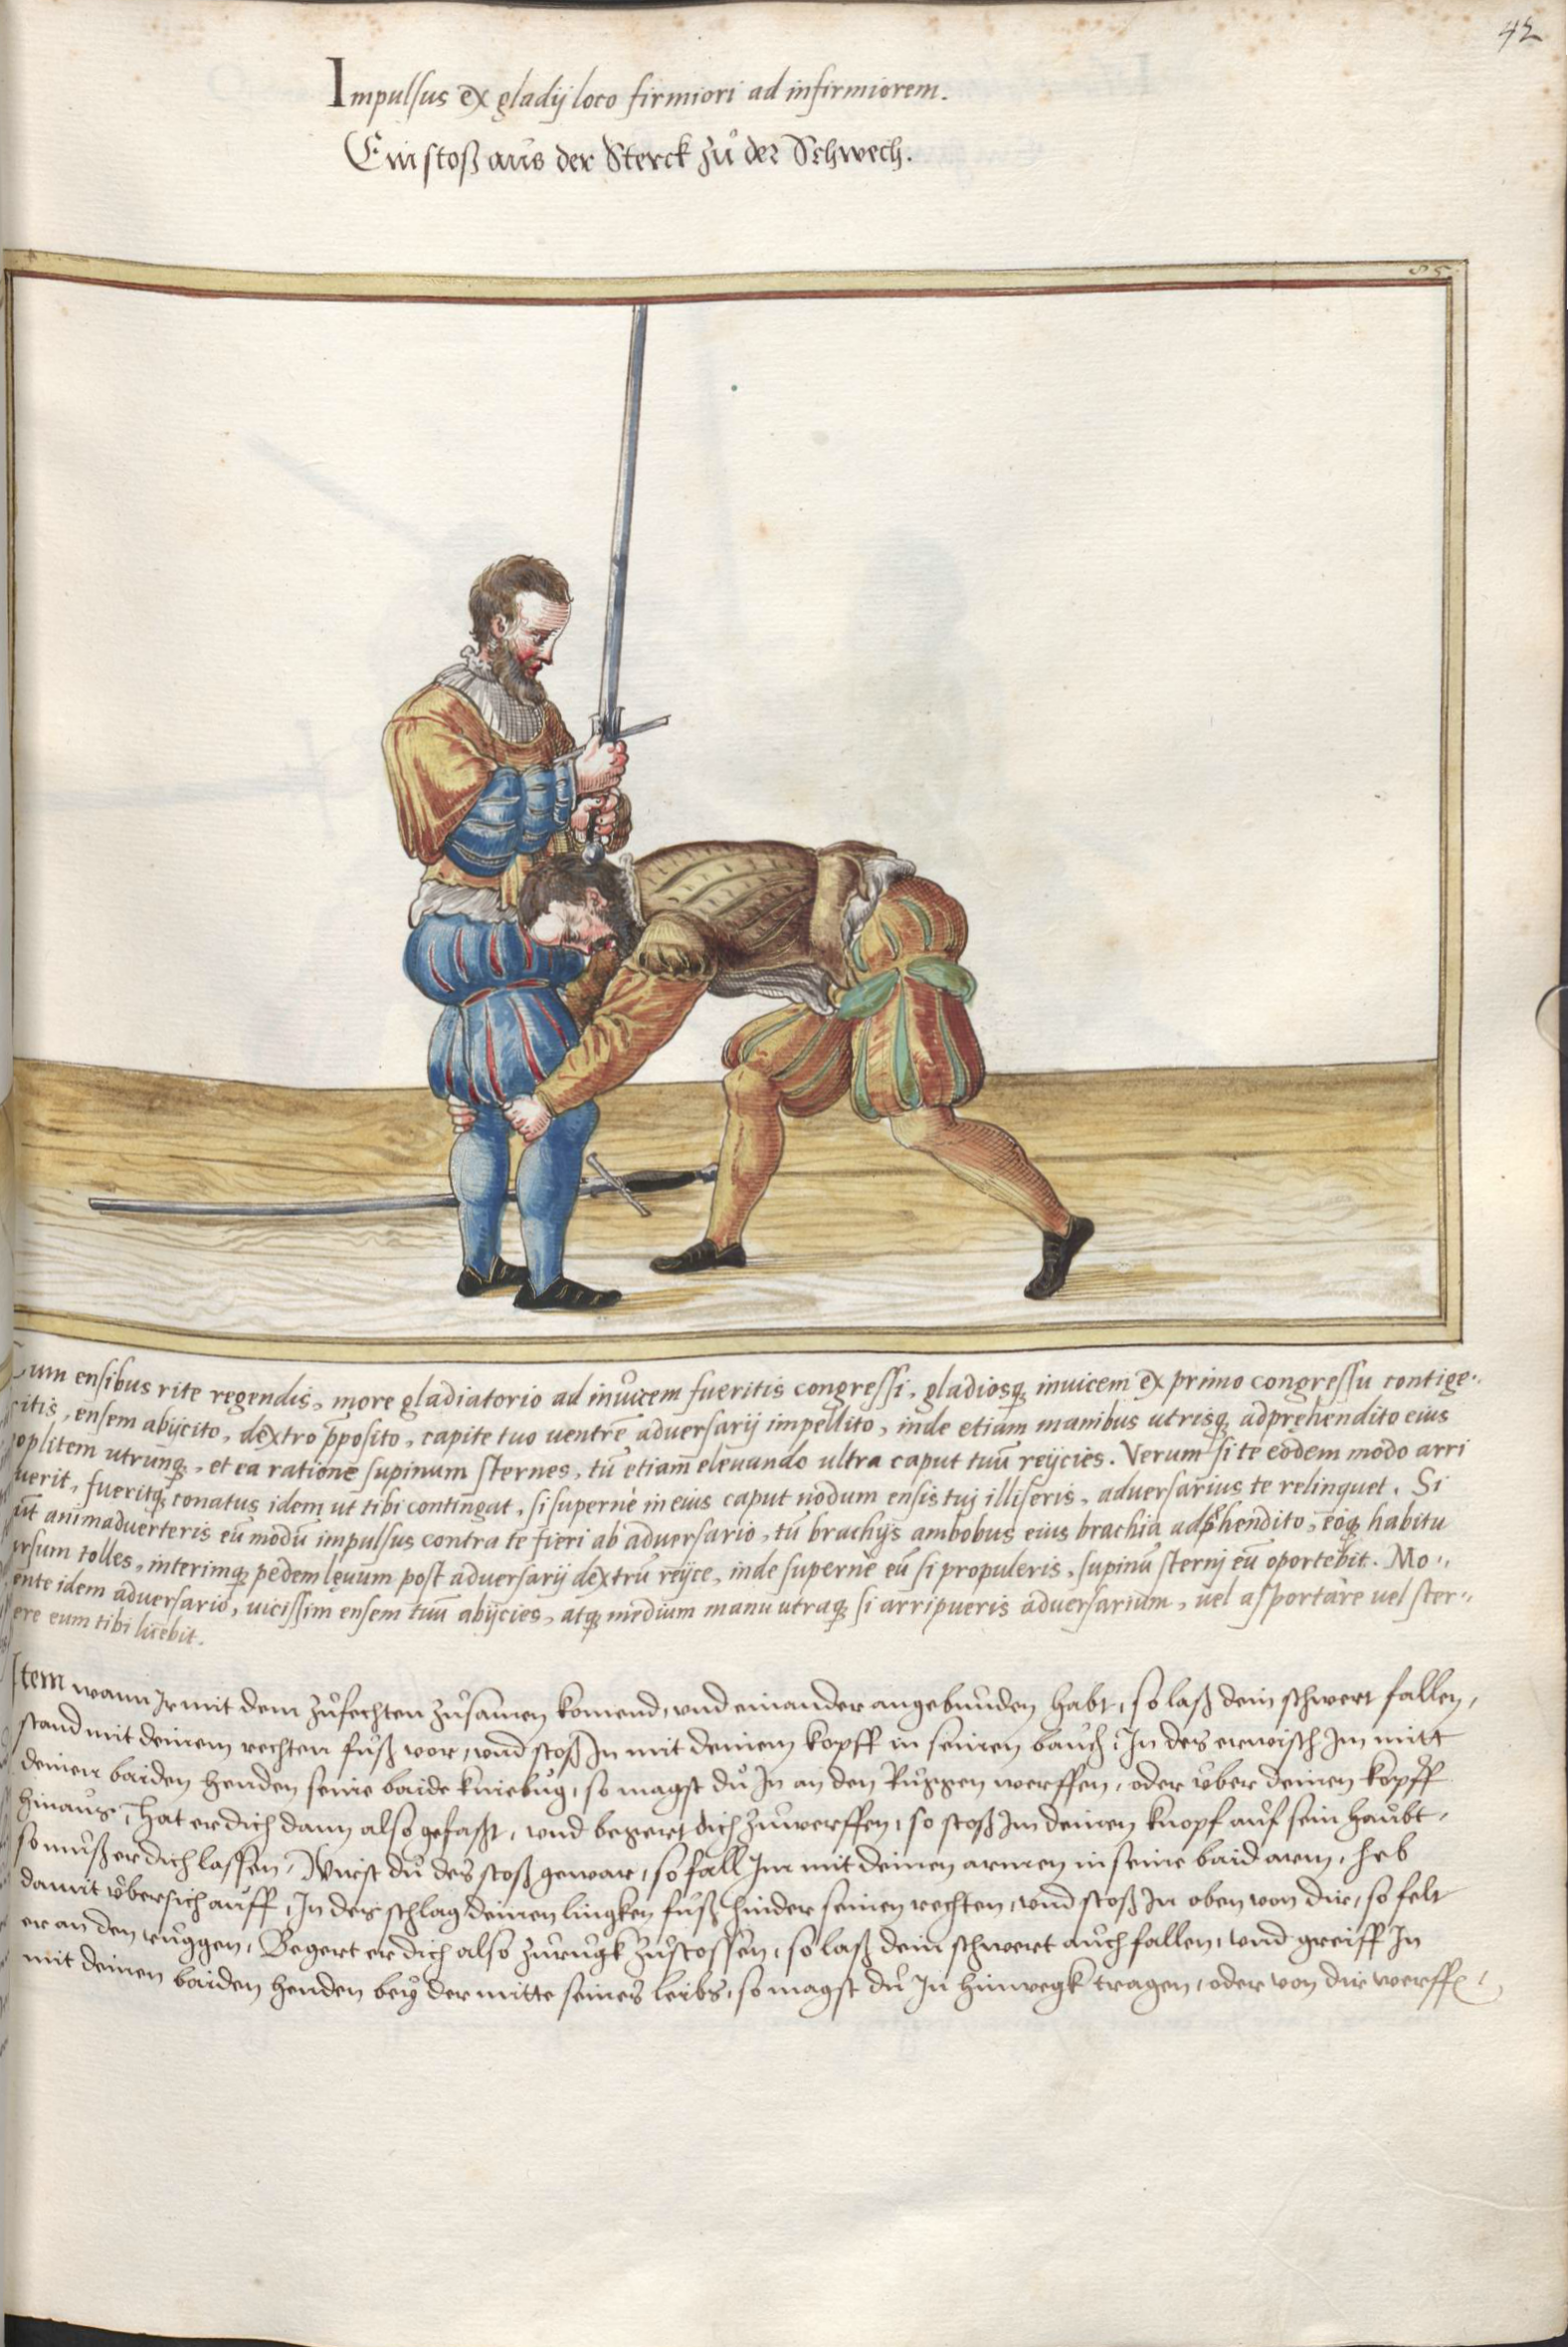 42
Impulsus ex gladij loco firmiori ad infirmiorem.
Ein stoß aus der Sterck zů der Schwech.
85.
Cum ensibus rite regendis, more gladiatorio ad inuicem fueritis congressi, gladiosq; inuicem ex primo congressu contige-
ritis, ensem abijcito, dextro p̄posito, capite tuo uentrē aduersarij impellito, inde etiam manibus utrisq; adprehendito eius
oplitem utrunq;, et ea ratione supinum sternes, tū etiam eleuando ultra caput tuū reijcies. Verum si te eodem modo arri
uerit, fueritq; conatus idem ut tibi contingat, si supernè in eius caput nodum ensis tuj illiseris, aduersarius te relinquet. Si
ūt animaduerteris eū modū impulsus contra te fieri ab aduersario, tū brachijs ambobus eius brachia adp̄hendito, eoq; habitu
ursum tolles, interimq; pedem lęuum post aduersarij dextrū reijce, inde supernè eū si propuleris, supinū sternj eū oportebit. Mo-
ente idem aduersario, uicissim ensem tuū abijcies, atq; medium manu utraq; si arripueris aduersarium, uel asportare uel ster-
ere eum tibi licebit.
Item wann Ir mit dem zůfechten zůsamen komend, und einander angebunden habt, so laß dein schwert fallen,
stand mit deinem rechten fůß vor, und stoß In mit deinem kopff in seinen bauch, In des erwisch Im mitt
deinen baiden henden seine baide kniebůg, so magst dů In an den Růggen werffen, oder über deinen kopff
hinaus, Hat er dich dann also gefaßt, und begert dich zůwerffen, so stoß Im deinen knopf auf sein haubt,
so můß er dich lassen, Wirst dů des stoß gewar, so fall Im mit deinen armen in seine baid arm, heb
damit übersich auff, In des schlag deinen lingken fůß hinder seinen rechten, und stoß In oben von dir, so felt
er an den růggen, Begert er dich also zůrůgk zůstossen, so laß dein schwert auch fallen, und greiff In
mit deinen baiden henden bey der mitte seines leibs, so magst dů In hinwegk tragen, oder von dir werffē.